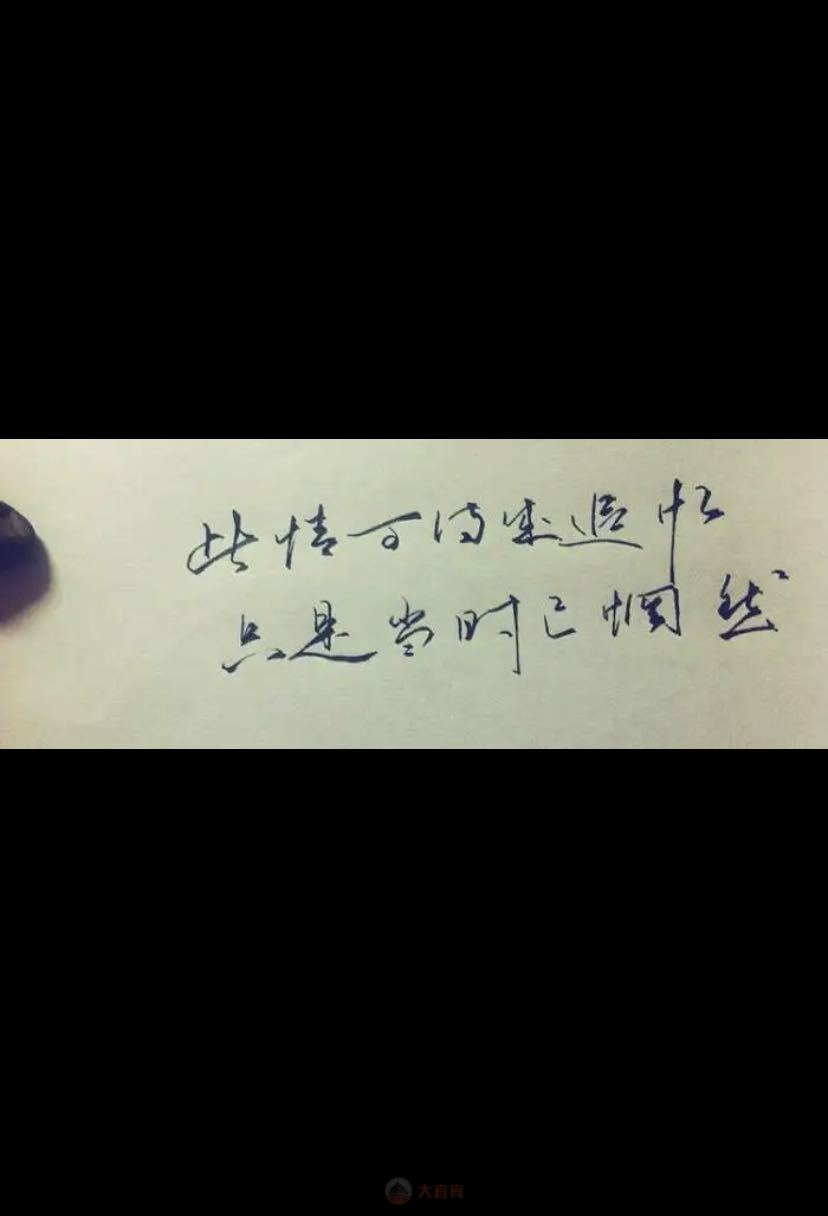 此情可待成追忆
只是当时已惘然
大宜宾